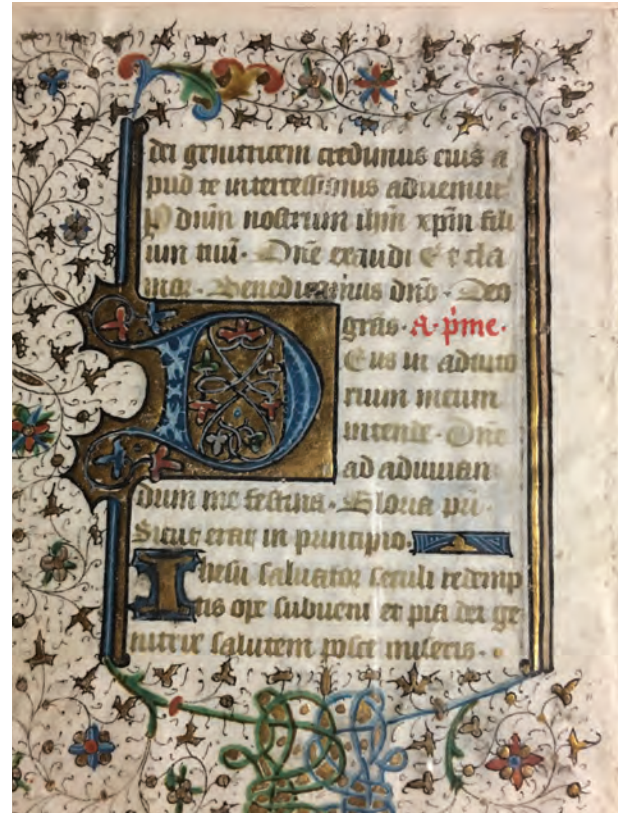 dei genitricem credimus eius a
pud te intercessionibus adiuvemur.
P dnm̄ nostrum ihm̄ xpm̄ fili
um tuū. Dn̄e exaudi Et cla
mor. Benedicamus dn̄o. Deo
gr̄as. A. p̄me.
Deus in adiuto
rium meum
intende. Dn̄e
ad adiuuan
dum me festina. Gloria pri.
Sicut erat in principio.
Ihesu saluator seculi redemp
tis ope subueni et pia dei ge
nitrix salutem posce miseris.